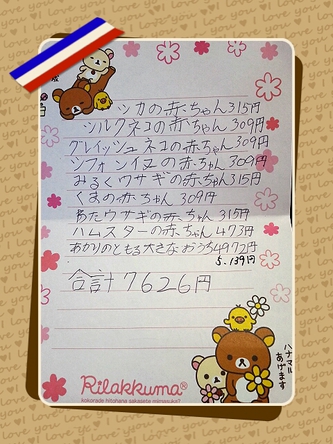 シカの赤ちゃん315円
シルクネコの赤ちゃん309円
クレイッシュネコの赤ちゃん309円
シフォンイヌの赤ちゃん309円
みるくウサギの赤ちゃん315円
くまの赤ちゃん309円
わたウサギの赤ちゃん315円
ハムスターの赤ちゃん473円
あかりのともる大きなおうち4972円
5.139円
合計7626円
ハナマル
あげます
Rilakkuma®
kokorade hitohana sakasete mimasuka?